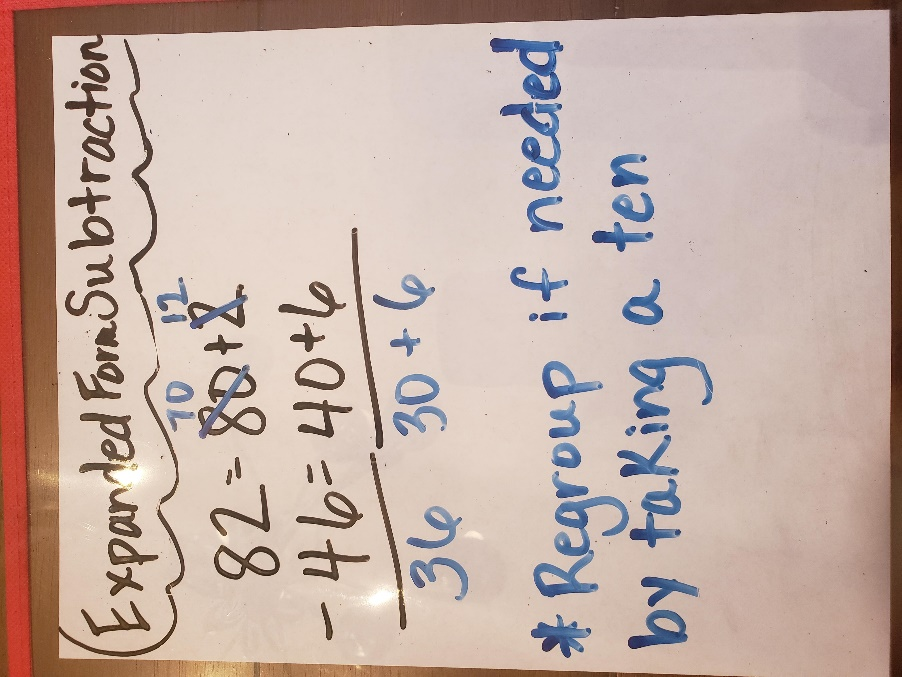 Expanded Form Subtraction
70 12
82 = 80 + 2
- 46 = 40 + 6
36 30 + 6
* Regroup if needed
by taking a ten